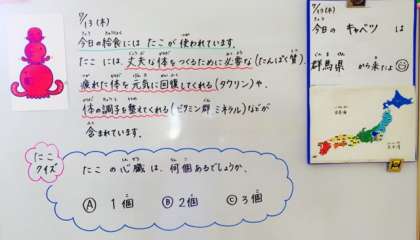 7/13(木)
今日の給食には たこ が 使われています。
たこ には、丈夫な体をつくるために必要な(たんぱく質)、
疲れた体を元気に回復してくれる(タウリン)や、
体の調子を整えてくれる(ビタミン群 ミネラル)などが
含まれています。
たこ
クイズ
たこ の 心臓 は、何個 あるでしょうか。
Ⓐ 1個 Ⓑ 2個 Ⓒ 3個
7/13(木)
今日 の キャベツ は
群馬県 から来たよ